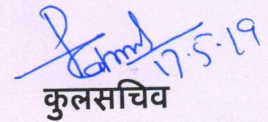 17.5.19
कुलसचिव